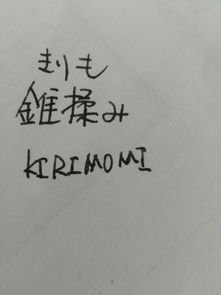 きりも
錐揉み
KIRIMOMI